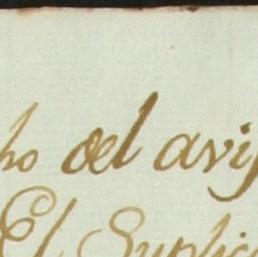 ho del avis
El Suplic